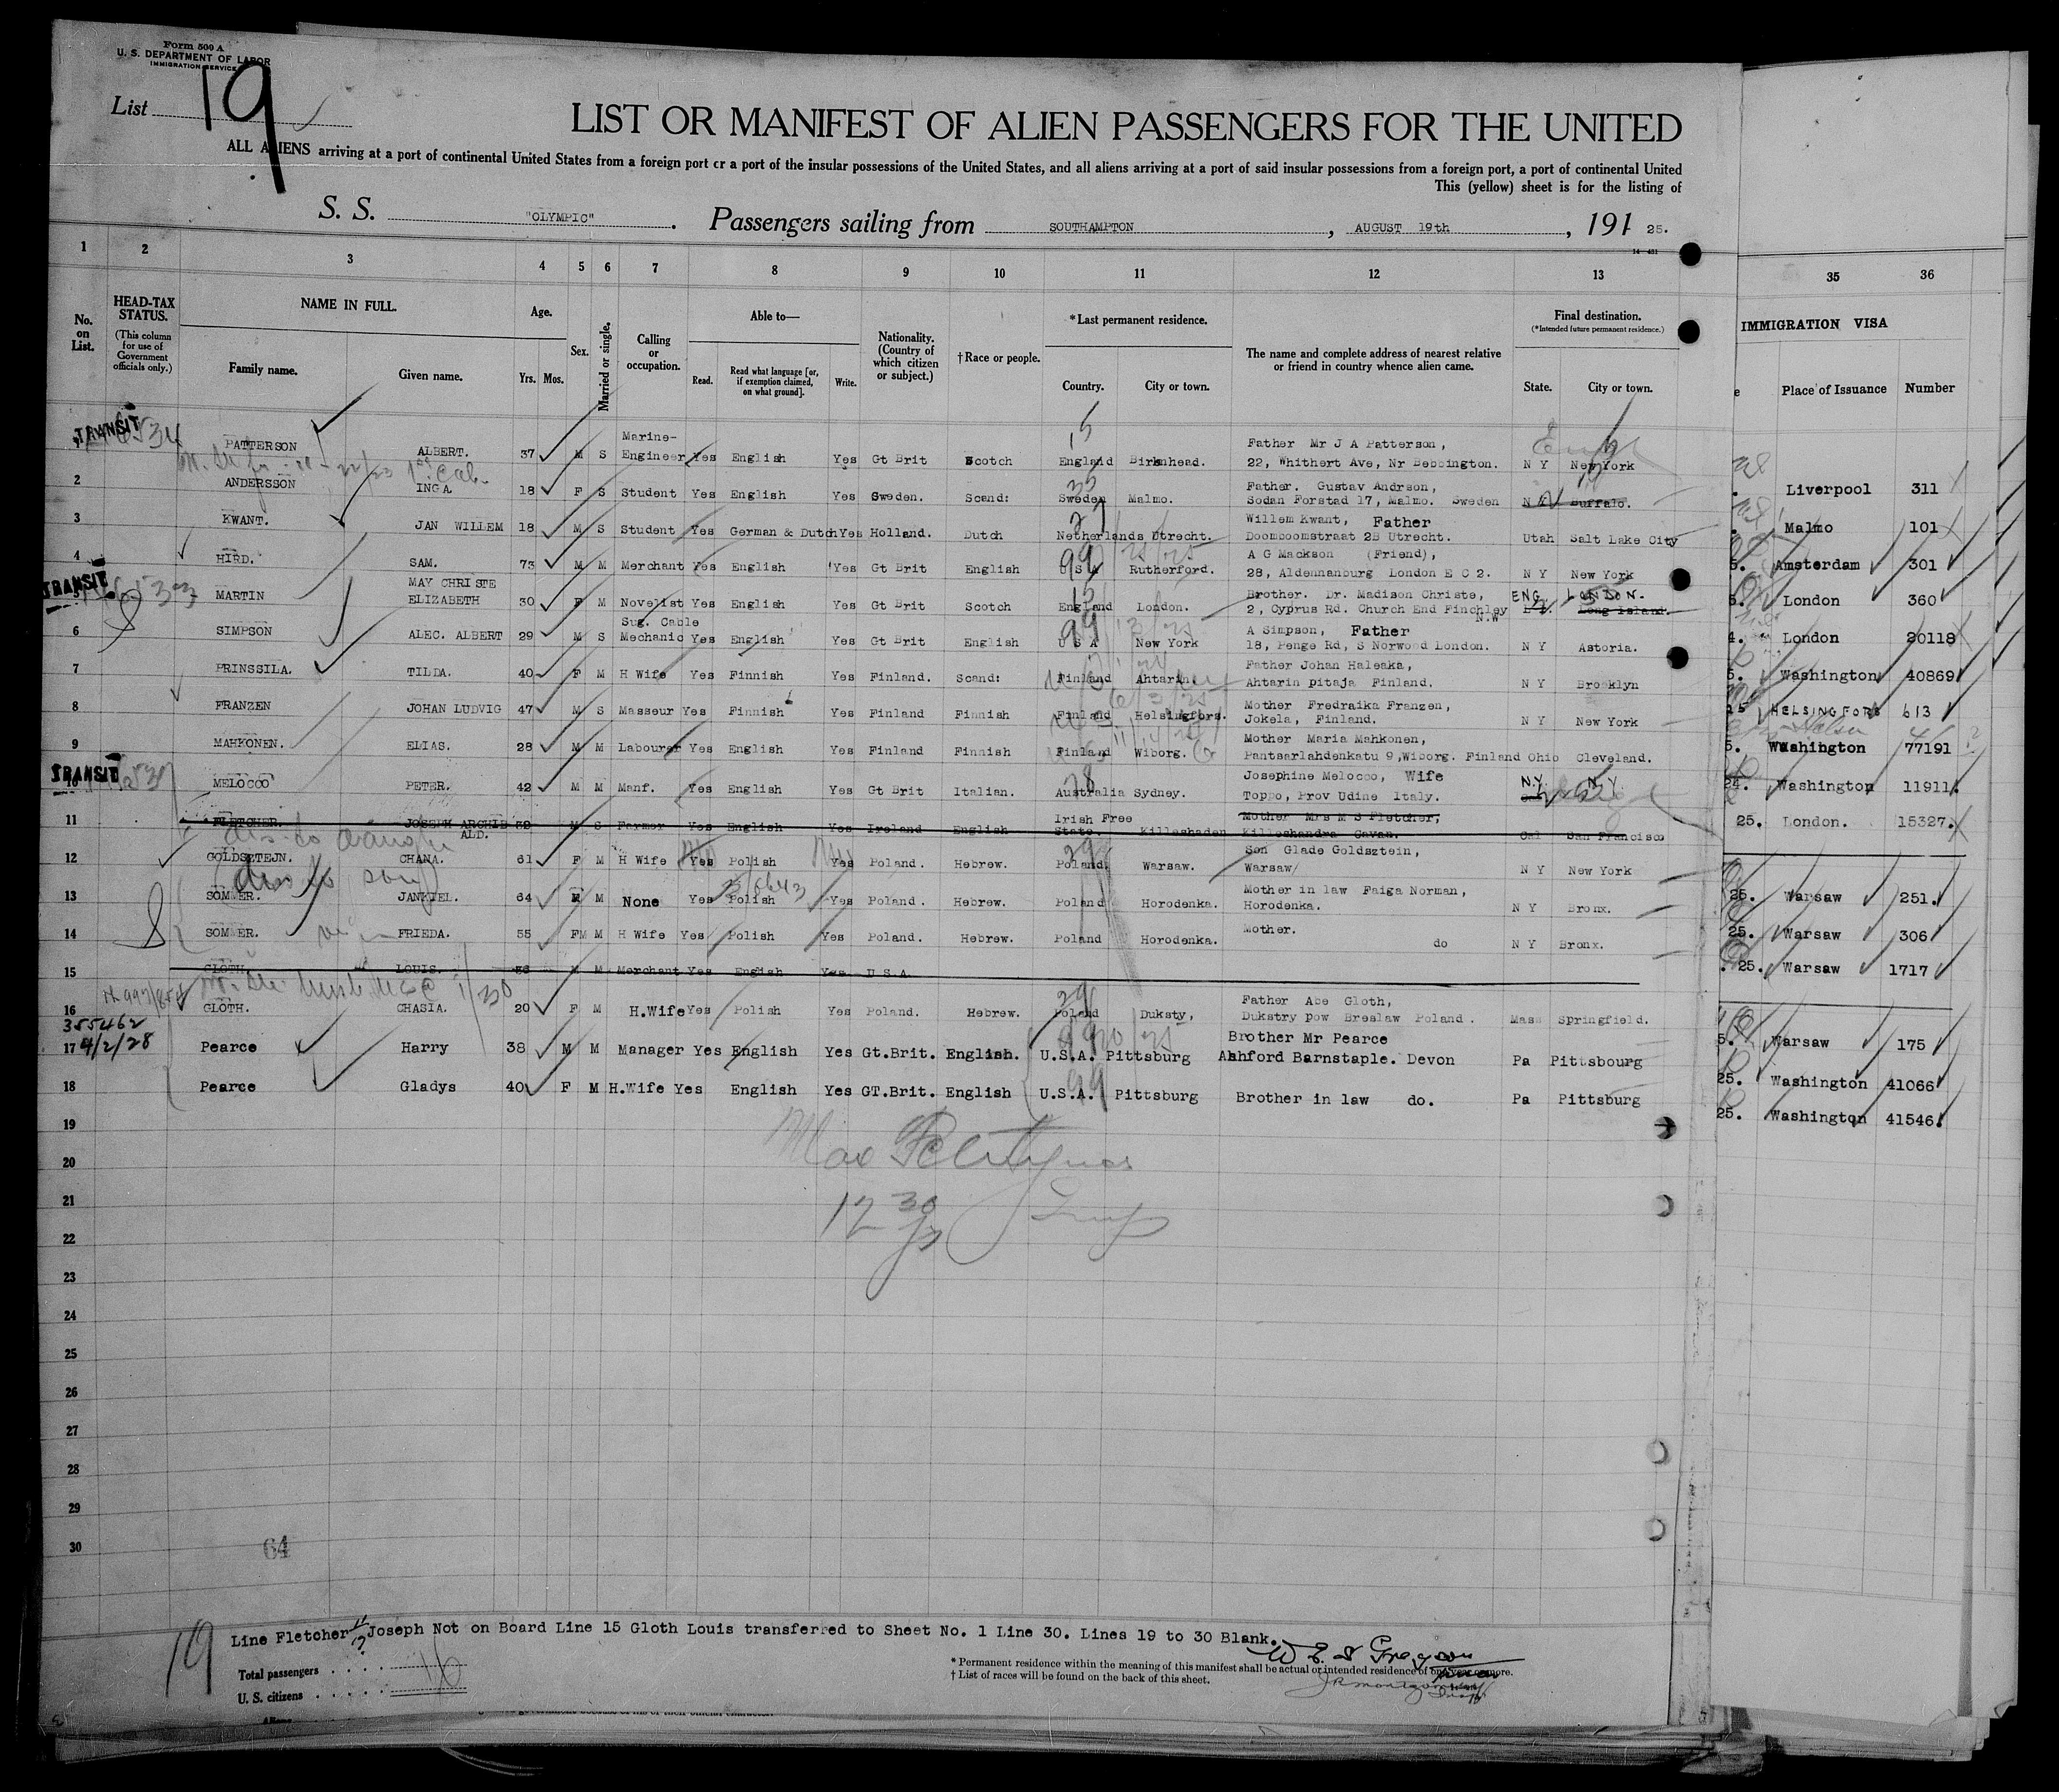 Form 500 A
U. S. DEPARTMENT OF LABOR
IMMIGRATION SERVICE
List 19
LIST OR MANIFEST OF ALIEN PASSENGERS FOR THE UNITED
ALL ALIENS arriving at a port of continental United States from a foreign port or a port of the insular possessions of the United States, and all aliens arriving at a port of said insular possessions from a foreign port, a port of continental United
This (yellow) sheet is for the listing of
S. S. "OLYMPIC". Passengers sailing from SOUTHAMPTON, AUGUST 19th, 191 25.
1 2 3 4 5 6 7 8 9 10 11 12 13 35 36
No. on List.
HEAD-TAX STATUS.
(This column for use of Government officials only.)
NAME IN FULL.
Family name. Given name.
Age.
Yrs. Mos.
Sex.
Married or single.
Calling or occupation.
Able to—
Read. Read what language [or, if exemption claimed, on what ground]. Write.
Nationality. (Country of which citizen or subject.)
†Race or people.
*Last permanent residence.
Country. City or town.
The name and complete address of nearest relative or friend in country whence alien came.
Final destination.
(*Intended future permanent residence.)
State. City or town.
IMMIGRATION VISA
e Place of Issuance Number
TRANSIT
1 PATTERSON ALBERT. 37 M S Marine- Engineer Yes English Yes Gt Brit Scotch England Birknhead. Father Mr J A Patterson, 22, Whithert Ave, Nr Bebbington. N Y New York
Liverpool 311
2 ANDERSSON INGA 18 F S Student Yes English Yes Sweden. Scand: Sweden Malmo. Father. Gustav Andrson, Sodan Forstad 17, Malmo. Sweden N Y Buffalo.
Malmo 101
3 KWANT. JAN WILLEM 18 M S Student Yes German & Dutch Yes Holland. Dutch Netherlands Utrecht. Willem Kwant, Father Doomboomstraat 2B Utrecht. Utah Salt Lake City
5. Amsterdam 301
4 HIRD. SAM. 73 M M Merchant Yes English Yes Gt Brit English U S A Rutherford. A G Mackson (Friend), 28, Aldennanburg London E C 2. N Y New York
5. London 360
TRANSIT
5 MARTIN MAY CHRISTE ELIZABETH 30 F M Novelist Yes English Yes Gt Brit Scotch England London. Brother. Dr. Madison Christe, 2, Cyprus Rd. Church End Finchley N.W ENG. LONDON. Long Island.
4. London 20118
6 SIMPSON ALEC. ALBERT 29 M S Sug. Cable Mechanic Yes English Yes Gt Brit English U S A New York A Simpson, Father 18, Penge Rd, S Norwood London. N Y Astoria.
5. Washington 40869
7 PRINSSILA. TILDA. 40 F M H Wife Yes Finnish Yes Finland. Scand: Finland Ahtarin. Father Johan Haleaka, Ahtarin pitaja Finland. N Y Brooklyn
25 HELSINGFORS 613
8 FRANZEN JOHAN LUDVIG 47 M S Masseur Yes Finnish Yes Finland Finnish Finland Helsingfors. Mother Fredraika Franzen, Jokela, Finland. N Y New York
5. Washington 77191
9 MAHKONEN. ELIAS. 28 M M Labourer Yes English Yes Finland Finnish Finland Wiborg. Mother Maria Mahkonen, Pantsarlahdenkatu 9, Wiborg. Finland Ohio Cleveland.
24. Washington 11911.
TRANSIT
10 MELOCCO PETER. 42 M M Manf. Yes English Yes Gt Brit Italian. Australia Sydney. Josephine Melocco, Wife Toppo, Prov Udine Italy. N.Y. N.Y.
25. London. 15327.
11 FLETCHER. JOSEPH ARCHIBALD. 52 M S Farmer Yes English Yes Ireland English Irish Free State. Killeshaden Mother Mrs M S Fletcher, Killeshandra Cavan. Cal San Francisco
12 GOLDSZTEJN. CHANA. 61 F M H Wife Yes Polish Yes Poland. Hebrew. Poland. Warsaw. Son Glade Goldsztein, Warsaw/ N Y New York
25. Warsaw 251.
13 SOMMER. JANKIEL. 64 M M None Yes Polish Yes Poland. Hebrew. Poland Horodenka. Mother in law Faiga Norman, Horodenka. N Y Bronx.
25. Warsaw 306
14 SOMMER. FRIEDA. 55 F M H Wife Yes Polish Yes Poland. Hebrew. Poland Horodenka. Mother. do N Y Bronx.
25. Warsaw 1717
15 GLOTH. LOUIS. 36 M M Merchant Yes English Yes U S A
16 GLOTH. CHASIA. 20 F M H.Wife Yes Polish Yes Poland. Hebrew. Poland Duksty, Father Abe Gloth, Dukstry pow Breslaw Poland. Mass Springfield.
5. Warsaw 175
355462
4/2/28
17 Pearce Harry 38 M M Manager Yes English Yes Gt.Brit. English. U.S.A. Pittsburg Brother Mr Pearce Ashford Barnstaple. Devon Pa Pittsbourg
25. Washington 41066
18 Pearce Gladys 40 F M H.Wife Yes English Yes GT.Brit. English U.S.A. Pittsburg Brother in law do. Pa Pittsburg
25. Washington 41546.
19
20
21
22
23
24
25
26
27
28
29
30
64
19
Line Fletcher 11 Joseph Not on Board Line 15 Gloth Louis transferred to Sheet No. 1 Line 30. Lines 19 to 30 Blank.
Total passengers . . . . 16
U. S. citizens . . . . .
* Permanent residence within the meaning of this manifest shall be actual or intended residence of one year or more.
† List of races will be found on the back of this sheet.